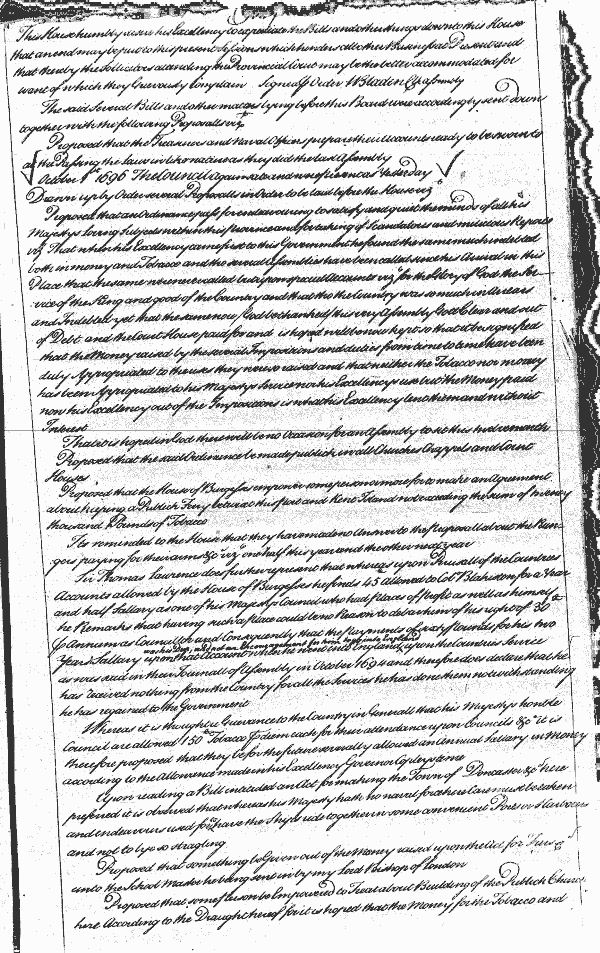 This House humbly desires his Excellency to expediate the Bills and other things down to this House
that an end may be put to this present Session which hinders all other Business for Dispatch and
that thereby the Sollicitors attending the Provincial Court may be the better accommodated for
want of which they Grievously Complain Signed p Order W Bladen Cl Assembly
The said Several Bills and other matters lying before this Board were accordingly sent down
together with the following Proposalls viz
Proposed that the Treasurers and Naval Officers prepare their Accounts ready to be sworn to
at the Passing the Laws in like manner as they did the last Assembly
October 1st 1696 The Council again sate and were present as Yesterday
Drawn up by Order several Proposalls in Order to be laid before the House viz
Proposed that an Ordinance pass for endeavouring to satisfy and quiet the minds of all his
Majestys loving Subjects within this province and for taking of Scandalous and malicious Reports
viz That when his Excellency came first to this Government he found the same much indebted
both in money and Tobacco and the several Assemblies have been called since his Arrival in this
Place that the same whenever called but upon special accounts viz for the Glory of God the Ser
vice of the King and good of the Country and that tho the Country was so much in Arrears
and Indebted yet that the same now God be thanked is this very Assembly Got Clear and out
of Debt and the Court House paid for and is hoped will be now kept so that it be signifyed
that the Money raised by the several Impositions and duties from time to time have been
duly Appropriated to the uses they were raised and that neither the Tobacco nor money
has been Appropriated to his Majestys Service nor his Excellencys use but the Money paid
now his Excellency out of the Impositions is what his Excellency lent them and without
Interest
That it is hoped in God there will be no Occasion for an Assembly to sit this twelvemonth
Proposed that the said Ordinance be made publick in all Churches Chappels and Court
Houses
Proposed that the House of Burgesses empower some person or more for to make an Agreement
about keeping a Publick Ferry between this port and Kent Island not exceeding the sum of money
thousand Pounds of Tobacco
Tis reminded to the House that they have made no Answer to the Proposall about the Ran
gers paying for their arms &c viz one half this year and the other next year
Sir Thomas Lawrence does further represent that whereas upon Perusall of the Countrees
Accounts allowed by the House of Burgesses he finds 45 allowed to Col Blakiston for a Year
and half Sallary as one of his Majestys Council who had places of Profit as well as himself
he Remarks that having such a place could be no Reason to debar him of his right of 30
p Annum as Councillor and Consequently that the Payments of sixty Pounds for his two
Years Sallary upon that Account when he went into England upon the Countrees Service
was in the Journall of Assembly in October 1694 and therefore does declare that he
has received nothing from the Country for all the Services he has done them notwithstanding
he has regained to the Government
Whereas it is thought a Grievance to the Country in Generall that his Majestys honble
Council are allowed 150 Tobacco p diem each for their attendance upon Councils &c it is
therefore proposed that they be for the future severally allowed an Annual Sallary in Money
according to the Allowance made in his Excellency Governor Copleys time
Upon reading a Bill intituled an Act for making the Town of Doncaster &c here
preferred it is observed that whereas his Majesty hath no naval force here Care must be taken
and endeavours used for have the Ships ride together in some convenient Port or Harbours
and not to lye so stragling
Proposed that something be Given out of the Money raised upon the Act for Furrs &c
unto the School Master he being sent in by my Lord Bishop of London
Proposed that some person be Impowered to Treat about Building of the Publick Church
here According to the Draught thereof for it is hoped that the Money for the Tobacco and